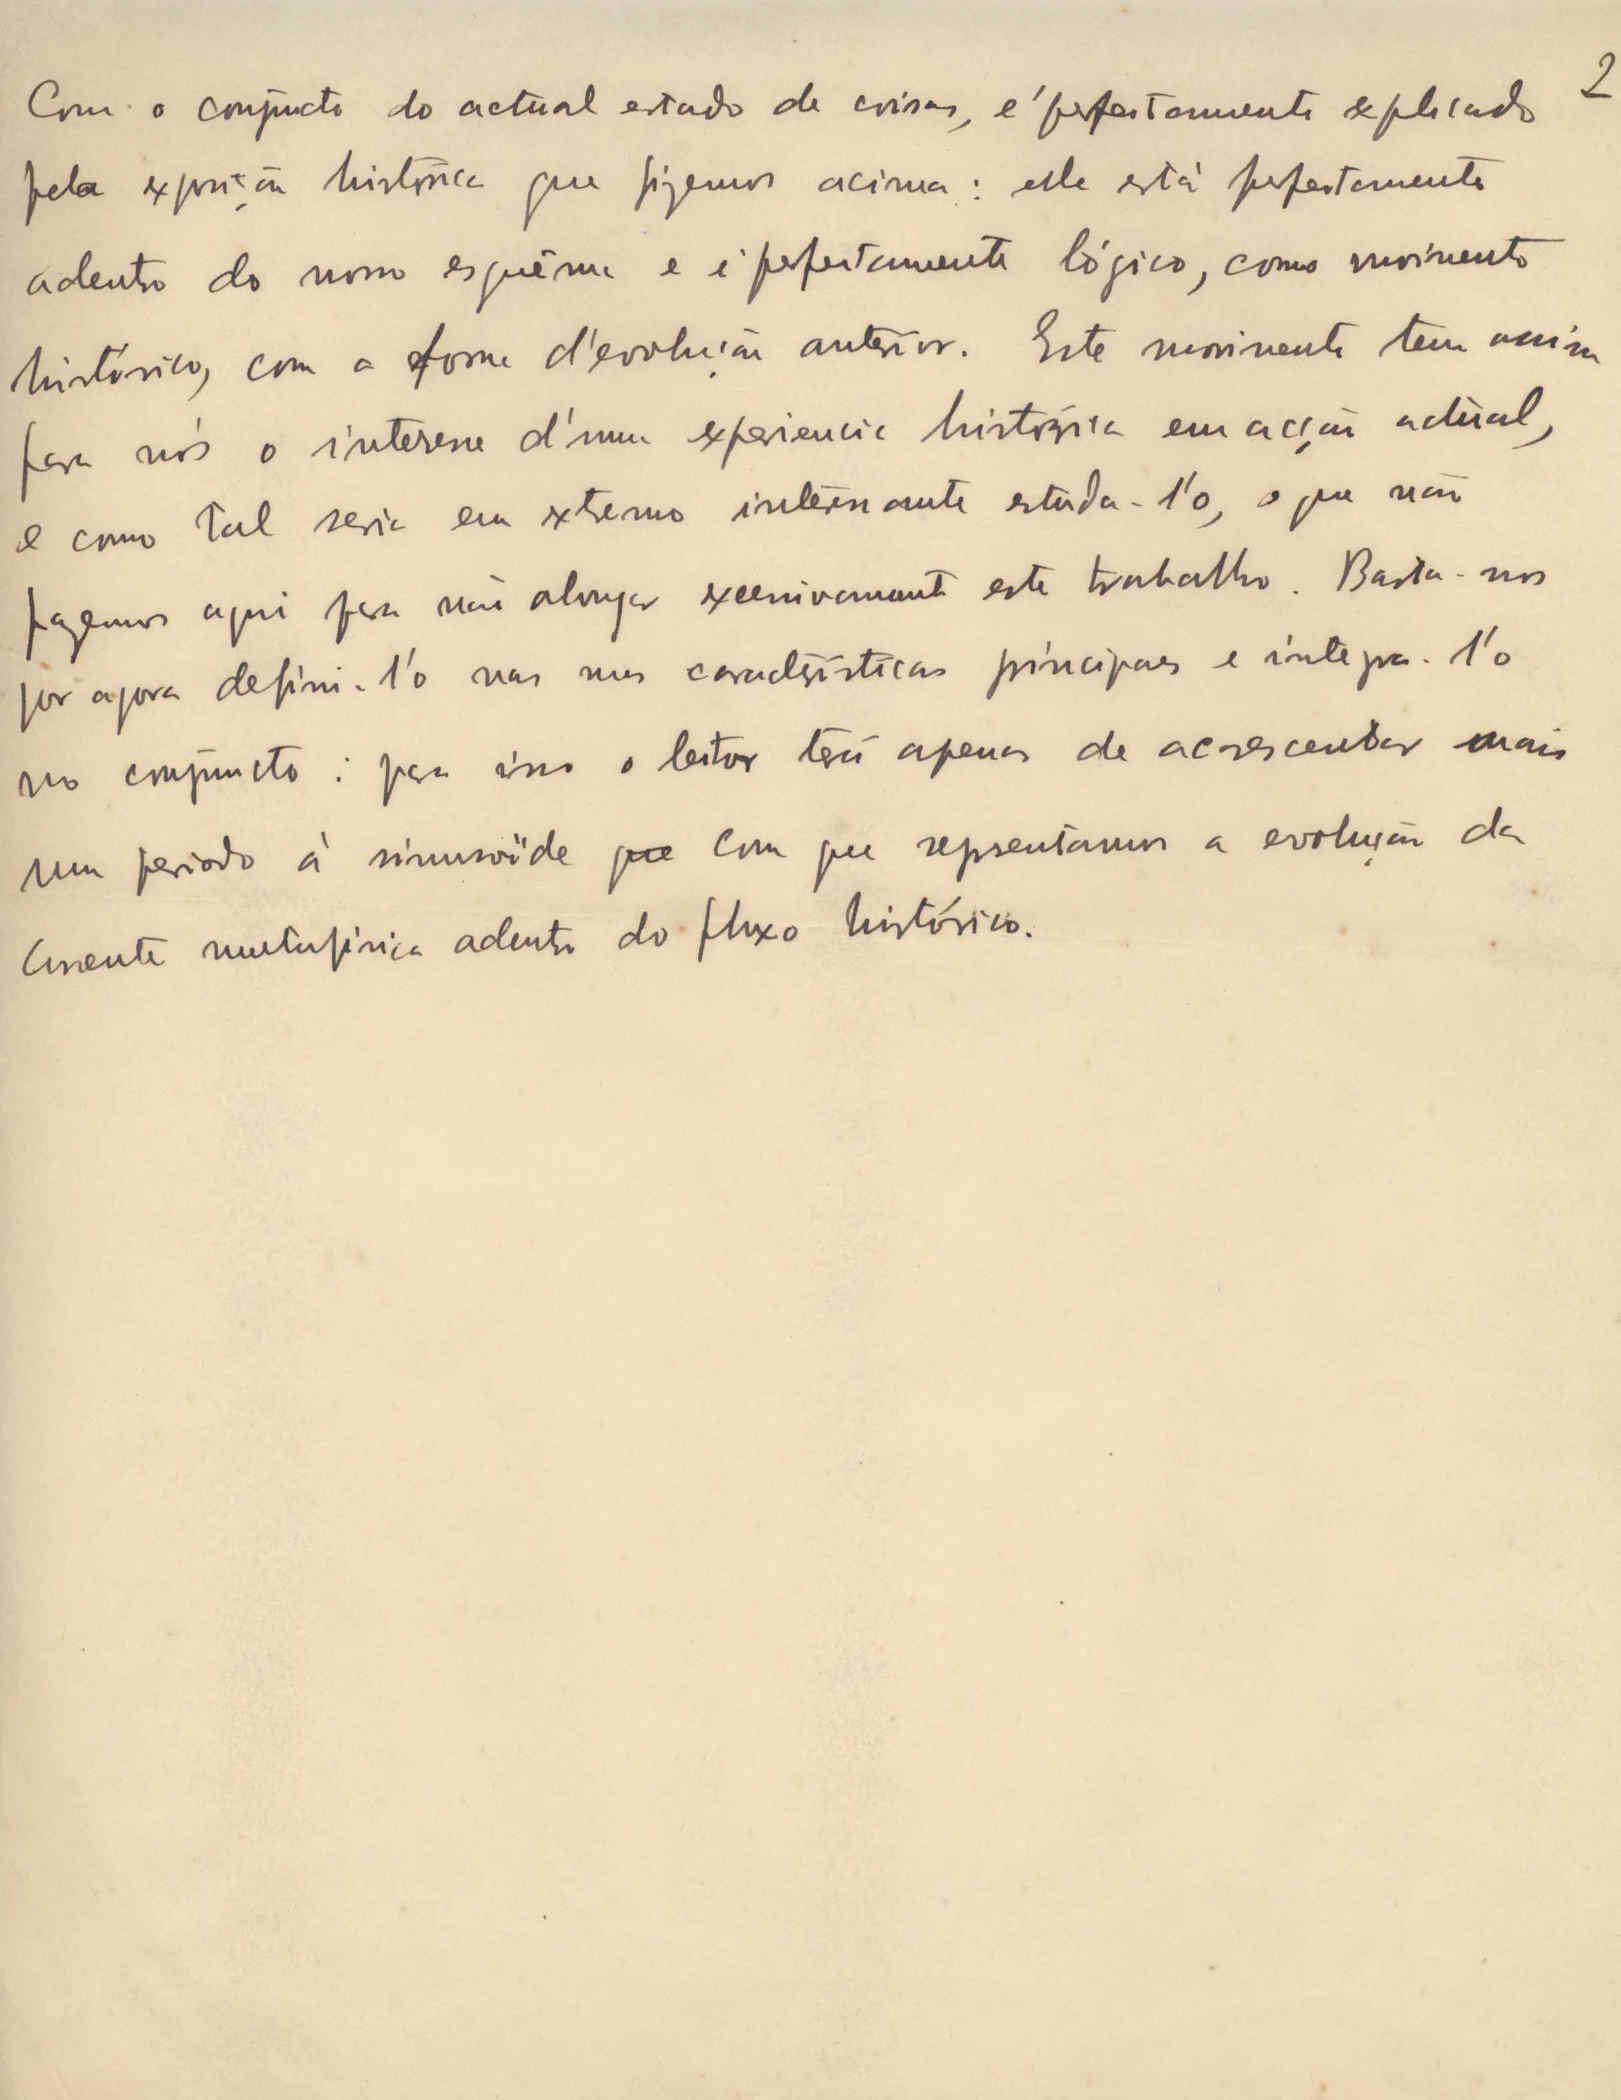 2
Com o conjuncto do actual estado de coisas, é perfeitamente explicado
pela exposição histórica que fizemos acima: elle está perfeitamente
adentro do nosso esquêma e é perfeitamente lógico, como movimento
histórico, com a forma d'evolução anterior. Este movimento tem assim
para nós o interesse d'uma experiencia histórica em acção actual,
e como tal seria em extremo interessante estuda-l'o, o que não
fazemos aqui para não alongar excessivamente este trabalho. Basta-nos
por agora defini-l'o nas suas caracteristicas principaes e integra-l'o
no conjuncto: para isso o leitor terá apenas de acrescentar mais
um periodo á sinusoïde que com que representamos a evolução da
corrente metafisica adentro do fluxo histórico.